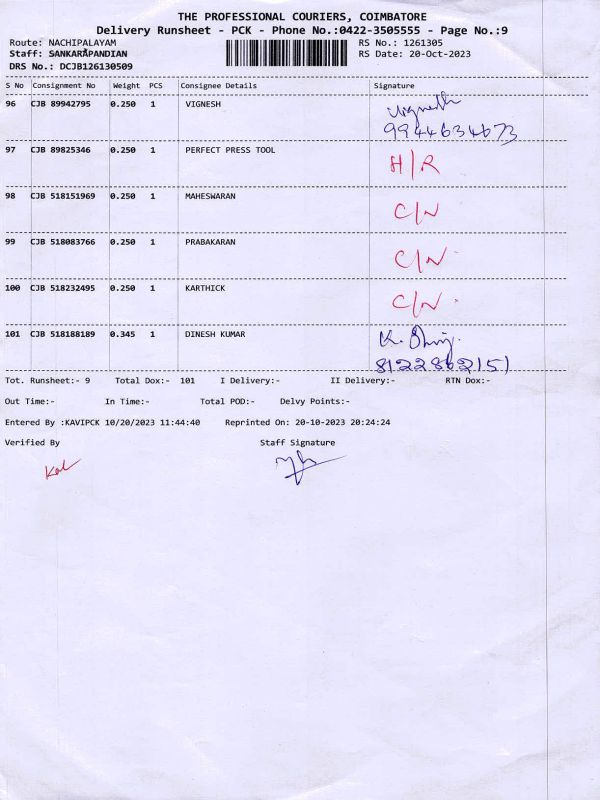 THE PROFESSIONAL COURIERS, COIMBATORE
Delivery Runsheet - PCK - Phone No.:0422-3505555 - Page No.:9
Route: NACHIPALAYAM RS No.: 1261305
Staff: SANKARAPANDIAN RS Date: 20-Oct-2023
DRS No.: DCJB126130509
S No Consignment No Weight PCS Consignee Details Signature
96 CJB 89942795 0.250 1 VIGNESH Vignesh
9944634673
97 CJB 89825346 0.250 1 PERFECT PRESS TOOL H/R
98 CJB 518151969 0.250 1 MAHESWARAN C/N
99 CJB 518083766 0.250 1 PRABAKARAN C/N
100 CJB 518232495 0.250 1 KARTHICK C/N
101 CJB 518188189 0.345 1 DINESH KUMAR K.
8122862151
Tot. Runsheet:- 9 Total Dox:- 101 I Delivery:- II Delivery:- RTN Dox:-
Out Time:- In Time:- Total POD:- Delvy Points:-
Entered By :KAVIPCK 10/20/2023 11:44:40 Reprinted On: 20-10-2023 20:24:24
Verified By Staff Signature